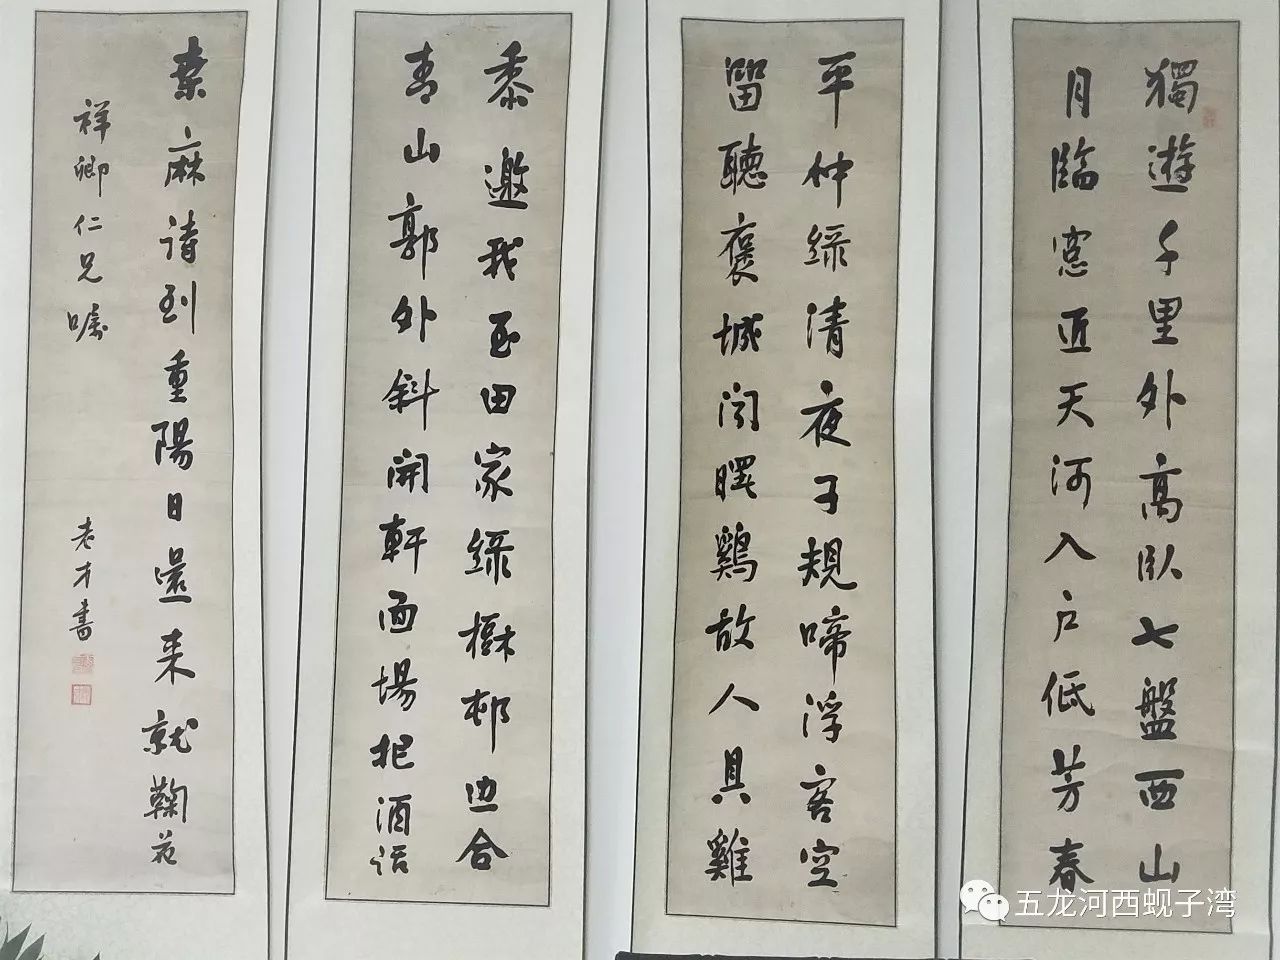 獨遊千里外高臥七盤西山
月臨窓近天河入戶低芳春
平仲綠清夜子規啼浮客空
留聽褒城闻曙鷄故人具雞
黍邀我至田家綠樹邨边合
青山郭外斜開軒面場把酒話
桒麻待到重陽日還来就鞠花
祥卿仁兄嘱
老才書
五龙河西蚬子湾